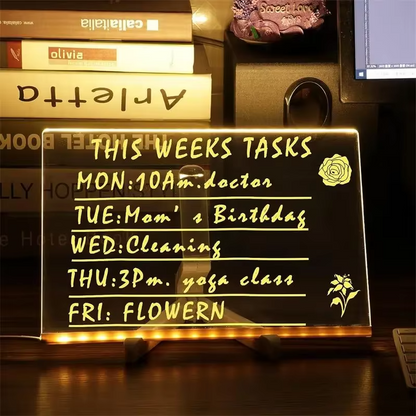 callaitalia
olivia
Arletta
THE HOTEL BOOK
LLY HOPPEN
Hote
Sweet Love
THIS WEEKS TASKS
MON:10Am.doctor
TUE:Mom's Birthday
WED:Cleaning
THU:3Pm. yoga class
FRI: FLOWERN